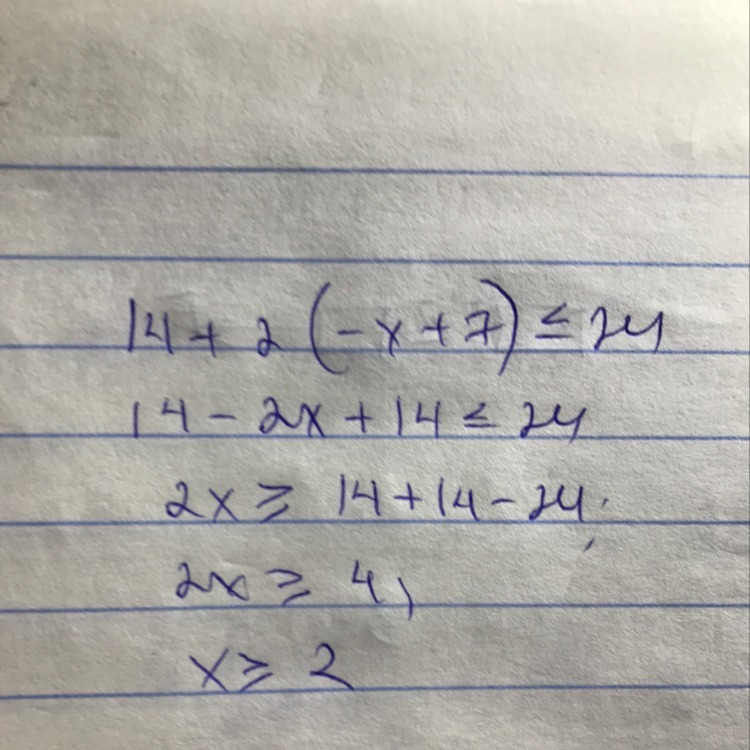 14 + 2 (-x + 7) ≤ 24
14 - 2x + 14 ≤ 24
2x ≥ 14 + 14 - 24;
2x ≥ 4,
x ≥ 2